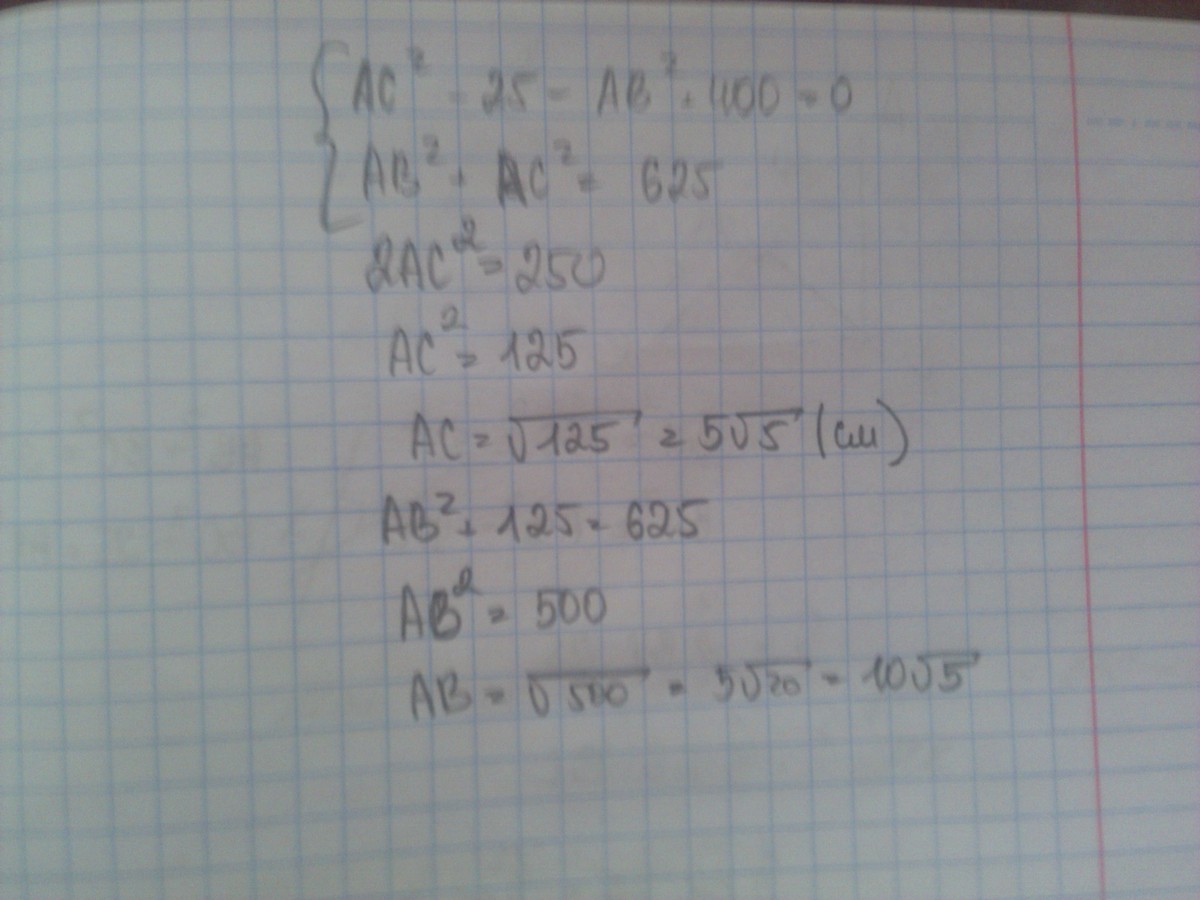 AC² - 25 - AB² + 400 = 0
AB² + AC² = 625
2AC² = 250
AC² = 125
AC = √125 = 5√5 (см)
AB² + 125 = 625
AB² = 500
AB = √500 = 5√20 = 10√5